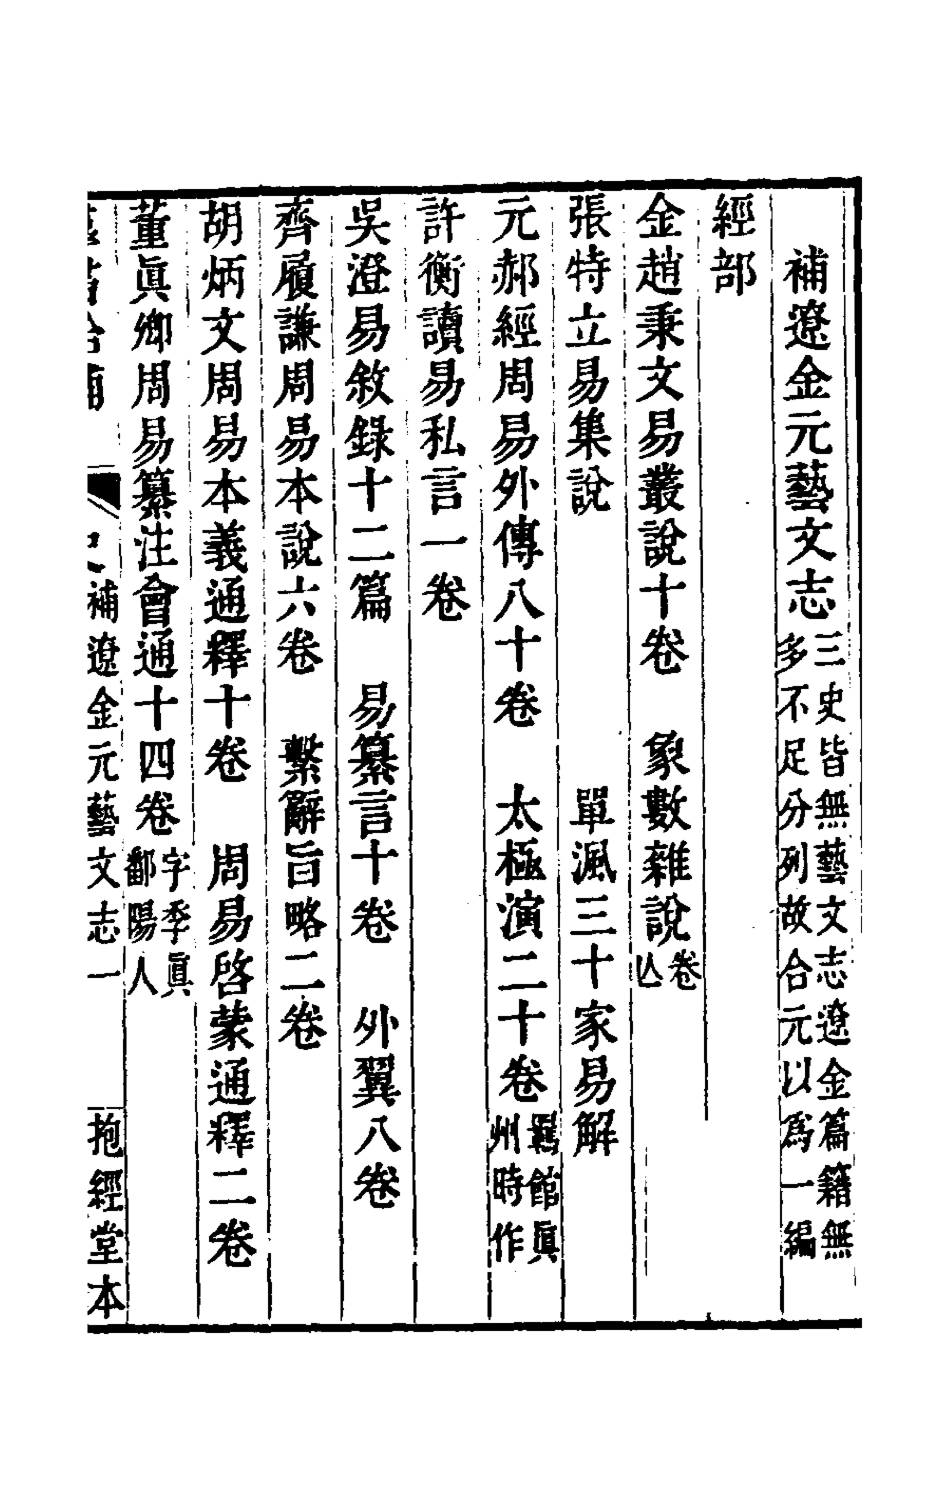 補遼金元藝文志三史皆無藝文志遼金篇籍無多不足分列故合元以爲一編
經部
金趙秉文易叢說十卷　象數雜說卷亾
張特立易集說　單渢三十家易解
元郝經周易外傳八十卷　太極演二十卷羈館眞州時作
許衡讀易私言一卷
吳澄易敘錄十二篇　易纂言十卷　外翼八卷
齊履謙周易本說六卷　繫辭旨略二卷
胡炳文周易本義通釋十卷　周易啓蒙通釋二卷
董眞卿周易纂注會通十四卷字季眞鄱陽人
羣書拾補　史補遼金元藝文志　一　抱經堂本